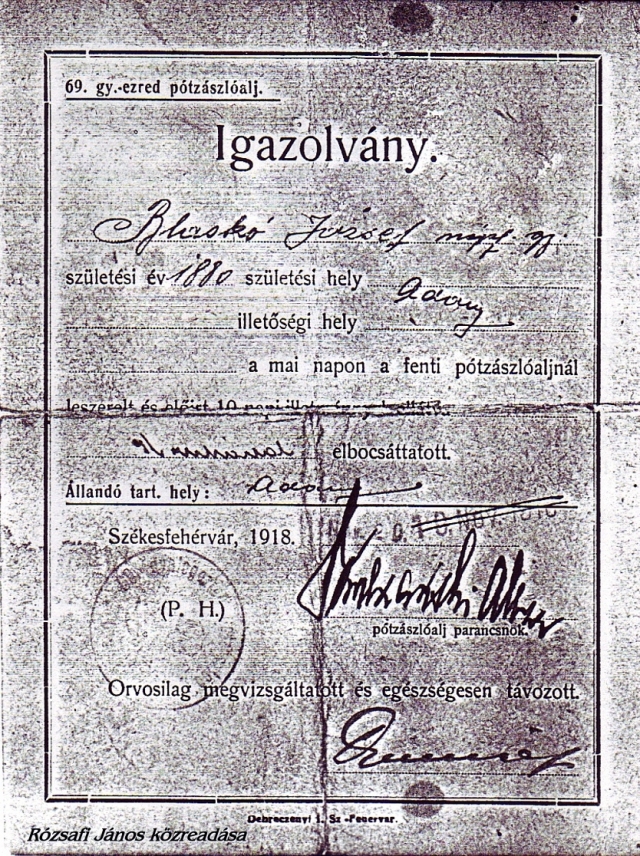 69. gy.-ezred pótzászlóalj.
Igazolvány.
Blaskó József népf. gy.
születési év 1880 születési hely
Adony
illetőségi hely
a mai napon a fenti pótzászlóaljnál
leszerelt és előirt 10 napi
elbocsáttatott.
Állandó tart. hely: Adony
Székesfehérvár, 1918.
NOV. 1918
(P. H.)
pótzászlóalj parancsnok.
Orvosilag megvizsgáltatott és egészségesen távozott.
Debreczenyi I. Sz.-Fehérvár.
Rózsafi János közreadása